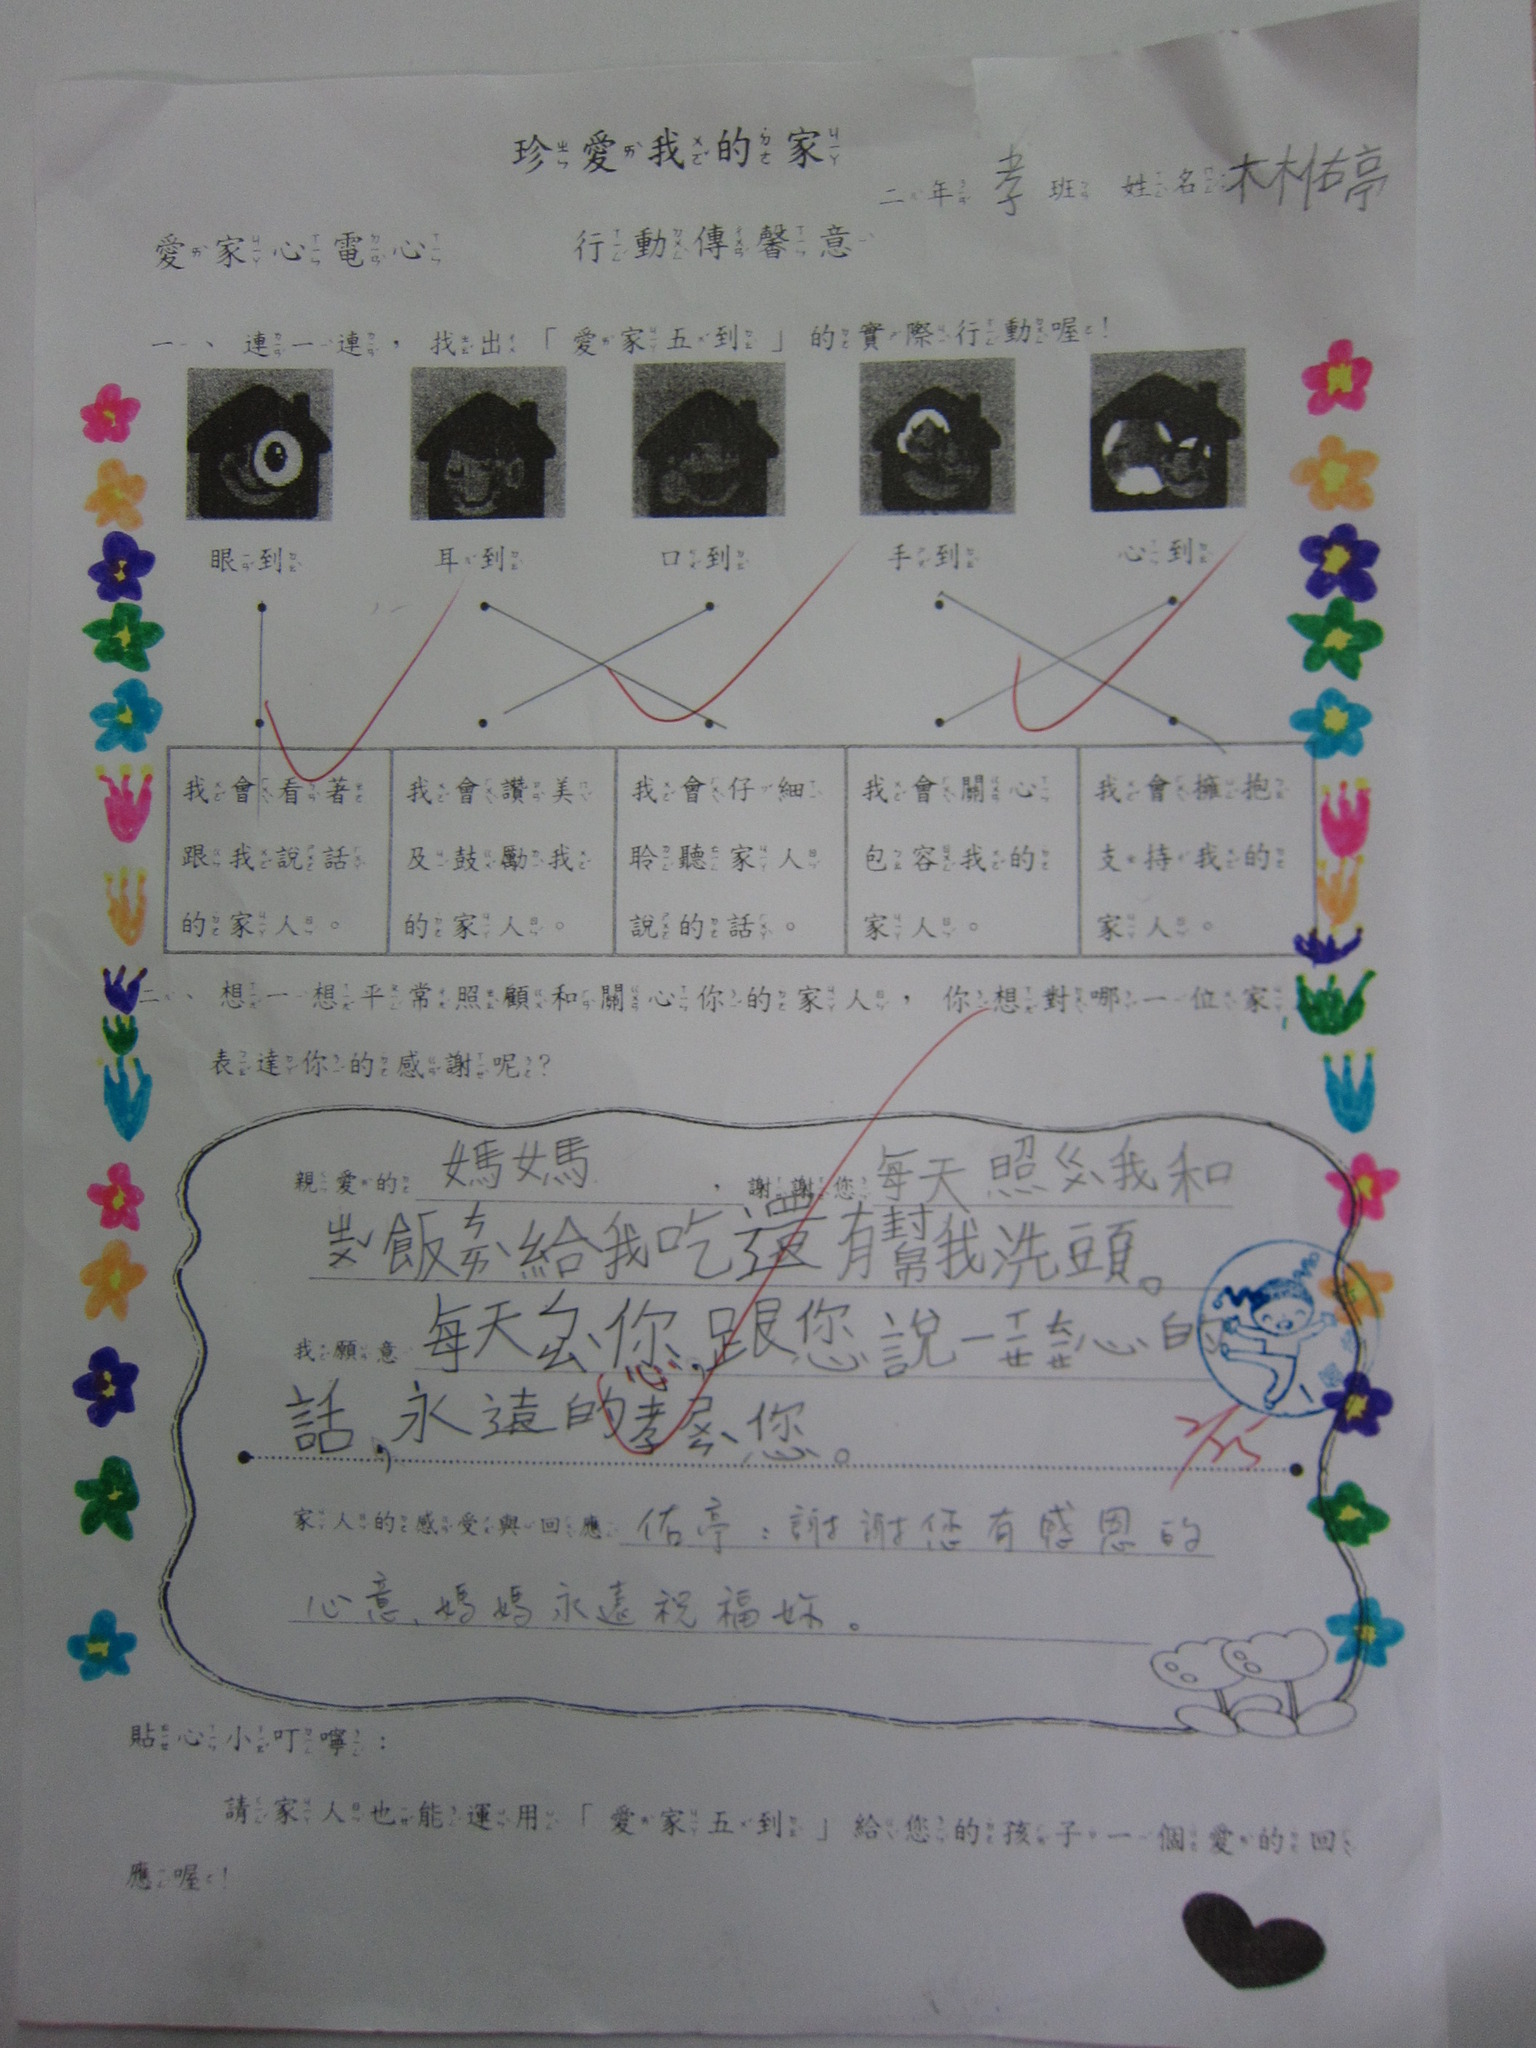 珍愛我的家
二年孝班 姓名林佑亭
愛家心電心 行動傳馨意
一、連一連,找出「愛家五到」的實際行動喔!
眼到 耳到 口到 手到 心到
我會看著跟我說話的家人。
我會讚美及鼓勵我的家人。
我會仔細聆聽家人說的話。
我會關心包容我的家人。
我會擁抱支持我的家人。
二、想一想平常照顧和關心你的家人,你想對哪一位家
表達你的感謝呢?
親愛的 媽媽 ,謝謝您 每天照ㄍㄨˋ我和
ㄓㄨˇ飯ㄘㄞˋ給我吃還有幫我洗頭。
我願意 每天ㄠˋ您,跟您說一ㄒㄧㄝㄊㄧㄝ心的
話,永遠的孝ㄕㄨㄣˋ您。
2/25
家人的感受與回應 佑亭:謝謝您有感恩的
心意,媽媽永遠祝福妳。
貼心小叮嚀:
請家人也能運用「愛家五到」給您的孩子一個愛的回
應喔!